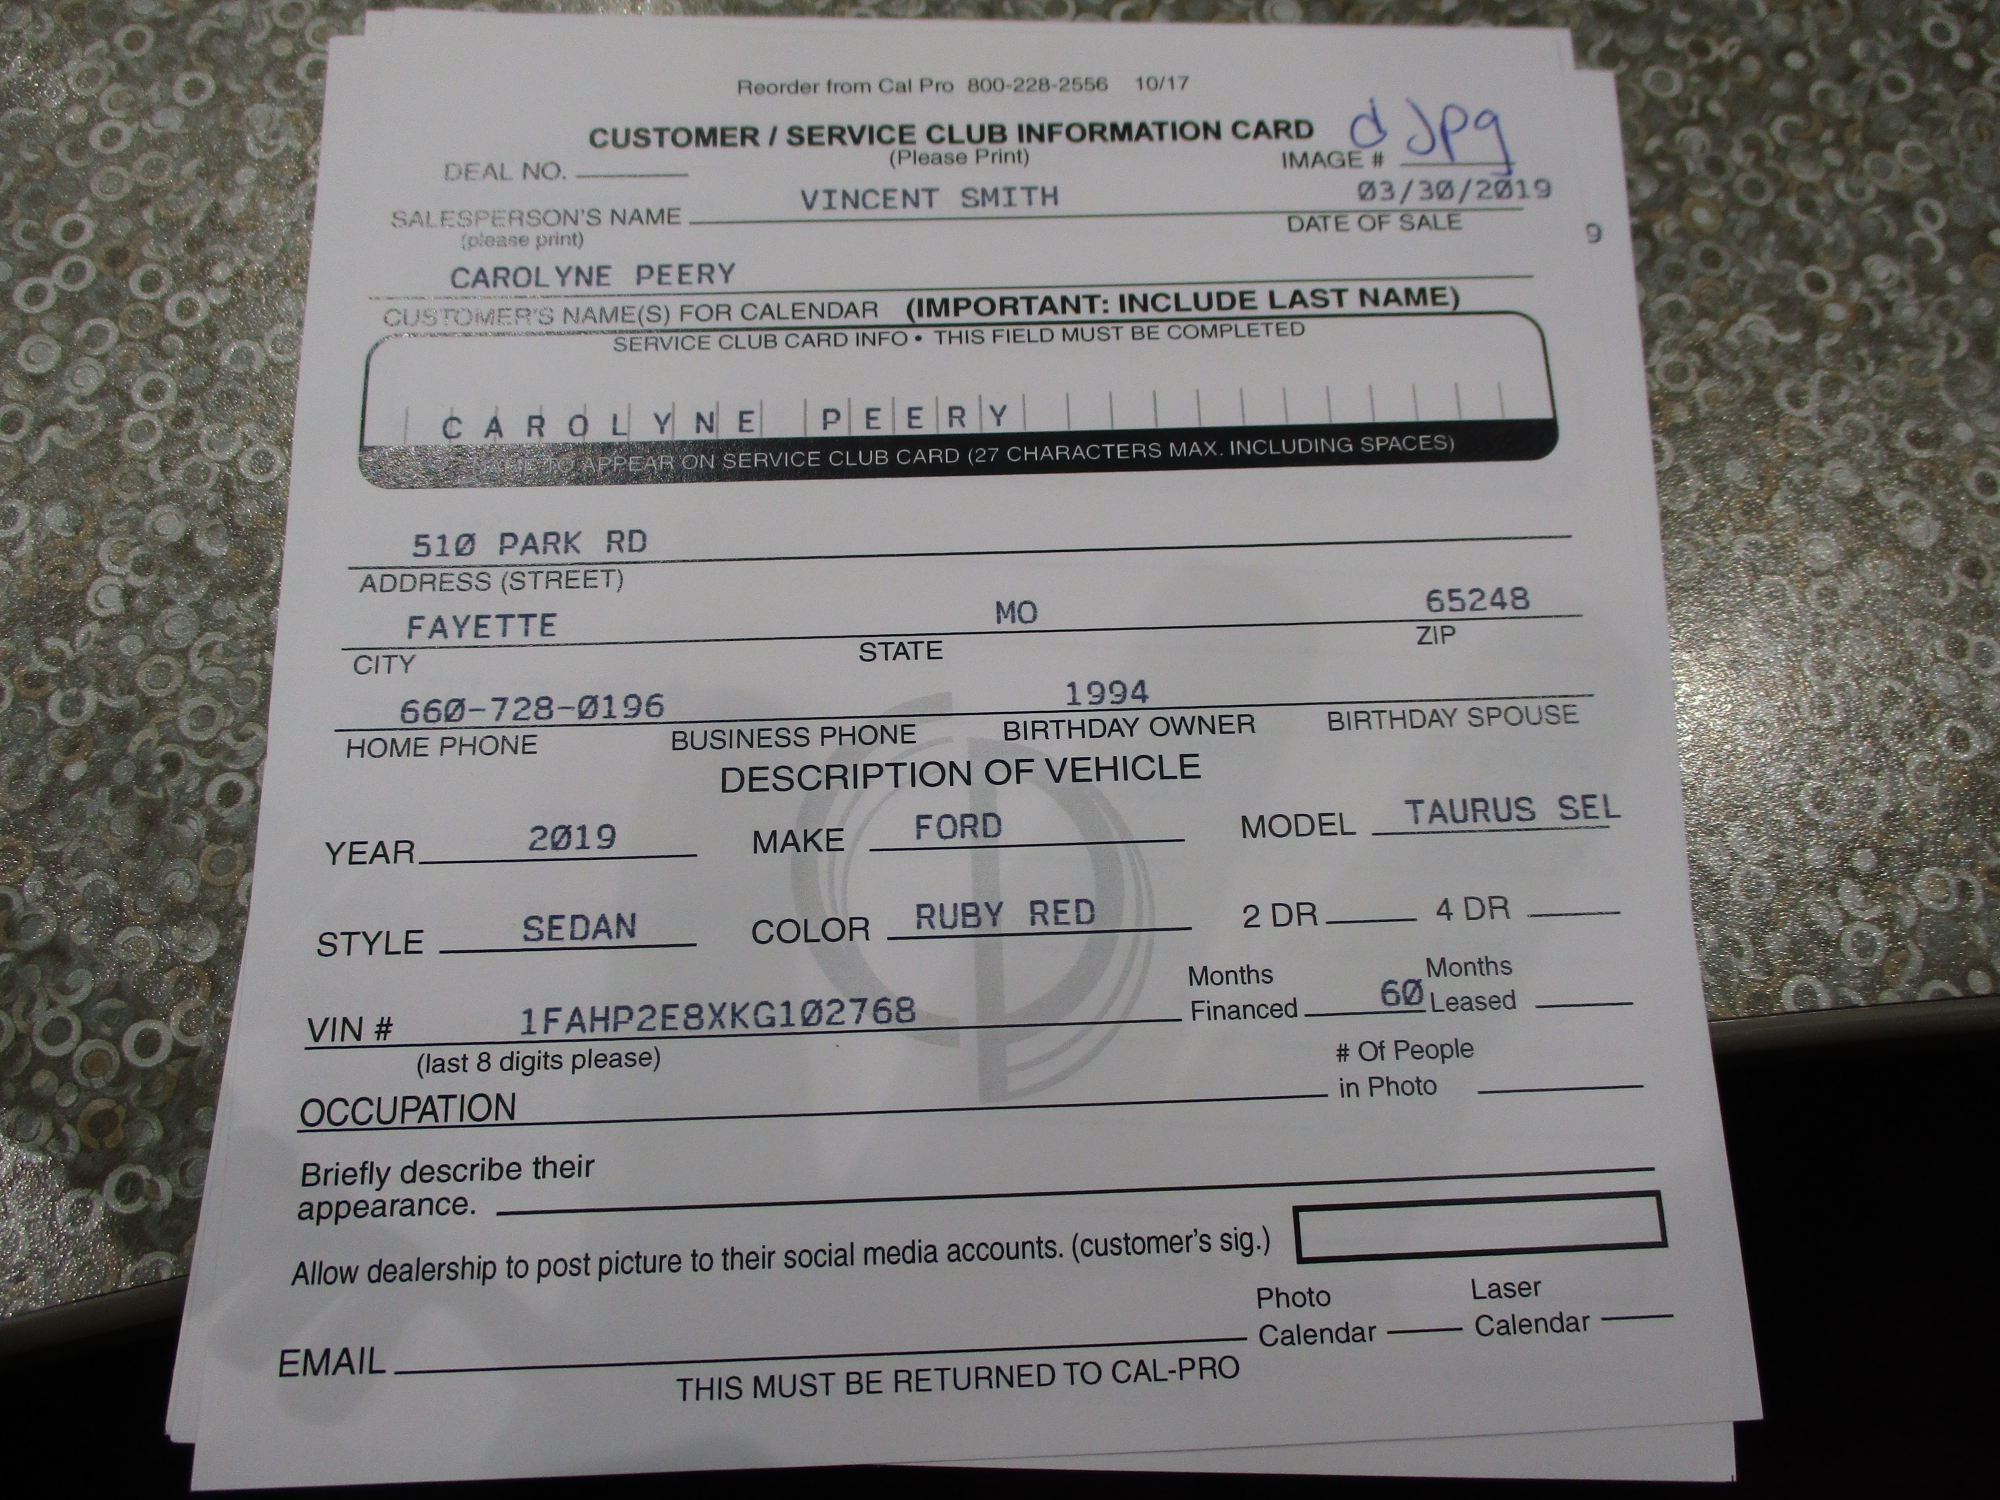 Reorder from Cal Pro 800-228-2556 10/17
CUSTOMER / SERVICE CLUB INFORMATION CARD
(Please Print)
d Jpg
DEAL NO.
IMAGE #
VINCENT SMITH
03/30/2019
SALESPERSON'S NAME
DATE OF SALE
(please print)
9
CAROLYNE PEERY
CUSTOMER'S NAME(S) FOR CALENDAR (IMPORTANT: INCLUDE LAST NAME)
SERVICE CLUB CARD INFO • THIS FIELD MUST BE COMPLETED
CAROLYNE PEERY
NAME TO APPEAR ON SERVICE CLUB CARD (27 CHARACTERS MAX. INCLUDING SPACES)
510 PARK RD
ADDRESS (STREET)
FAYETTE MO 65248
CITY STATE ZIP
660-728-0196 1994
HOME PHONE BUSINESS PHONE BIRTHDAY OWNER BIRTHDAY SPOUSE
DESCRIPTION OF VEHICLE
YEAR 2019 MAKE FORD MODEL TAURUS SEL
STYLE SEDAN COLOR RUBY RED 2 DR 4 DR
Months Months
VIN # 1FAHP2E8XKG102768 Financed 60 Leased
(last 8 digits please)
# Of People
OCCUPATION in Photo
Briefly describe their
appearance.
Allow dealership to post picture to their social media accounts. (customer's sig.)
Photo Laser
EMAIL Calendar Calendar
THIS MUST BE RETURNED TO CAL-PRO